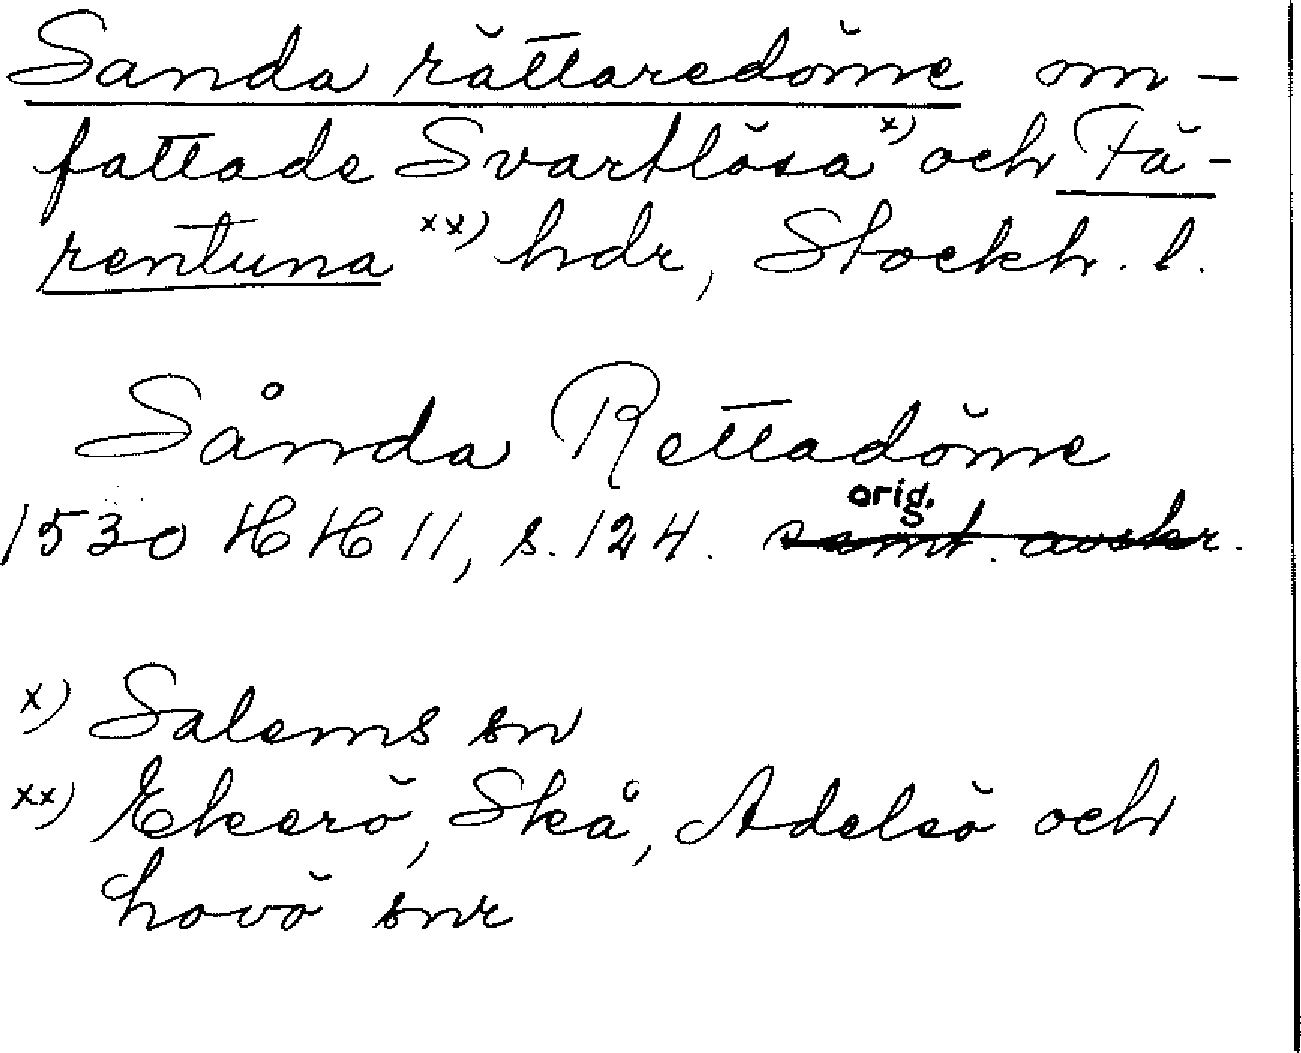 Sanda rättaredöme om-
fattade Svartlösa x) och Fä-
rentuna xx) hdr, Stockh. l.
Sånda Rettadöme
orig.
1530 HH 11, s. 124. samt. avskr.
x) Salems sn
xx) Ekerö, Skå, Adelsö och
Lovö snr